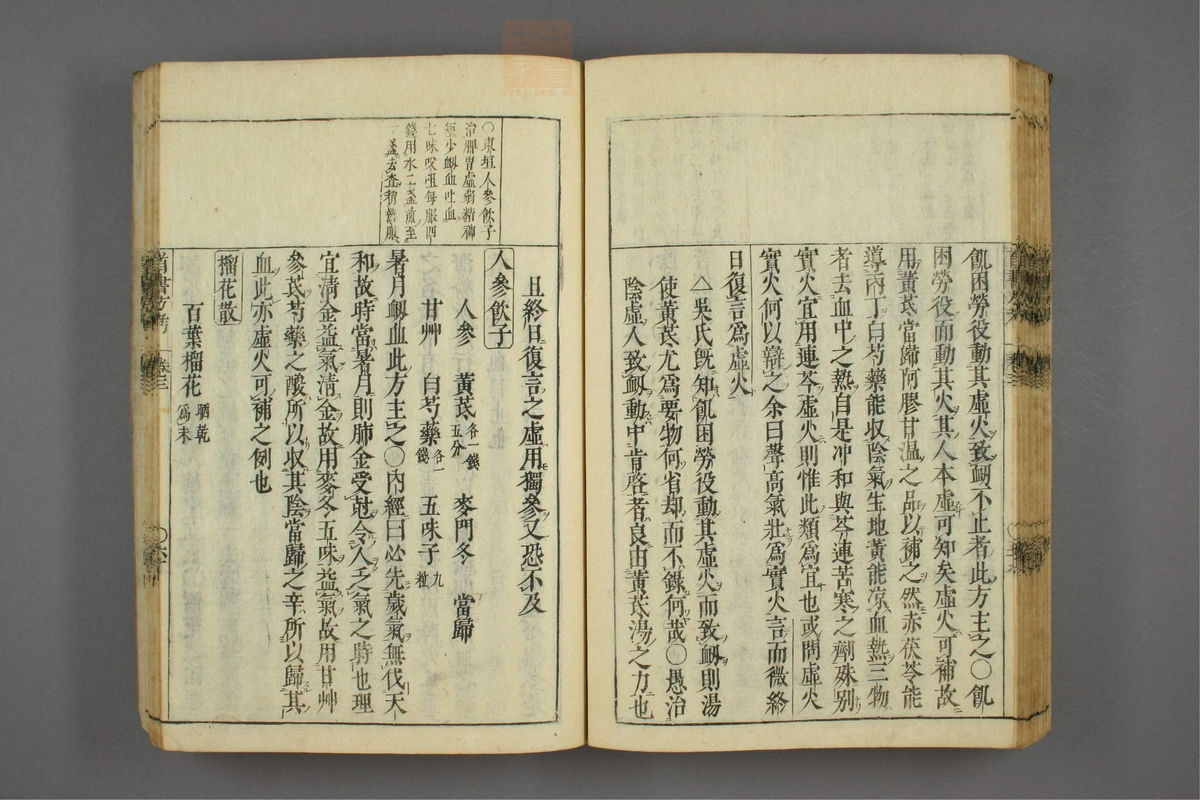 飢困勞役動其虛火致衂不止者此方主之〇飢
困勞役而動其火其人本虛可知矣虛火可補故
用黃芪當歸阿膠甘溫之品以補之然赤茯苓能
導丙丁白芍藥能收陰氣生地黃能凉血熱三物
者去血中之熱自是冲和與芩連苦寒之劑殊別
實火宜用連芩虛火則惟此類爲宜也或問虛火
實火何以辯之余曰聲高氣壯爲實火言而微終
日復言爲虛火
△吳氏旣知飢困勞役動其虛火而致衂則湯
使黃芪尤爲要物何省却而不錄何哉〇愚治
陰虛人致衂動中肯綮者良由黃芪湯之力也
〇東垣人參飲子
治脾胃虛弱精神
短少衂血吐血
七味㕮咀每服四
錢用水二盞煎至
一盞去渣稍熱服
且終日復言之虛用獨參又恐不及
人參飲子
人參 黃芪各一錢五分 麥門冬 當歸
甘艸 白芍藥各一錢 五味子九粒
暑月衂血此方主之〇內經曰必先歲氣無伐天
和故時當暑月則肺金受尅令人乏氣之時也理
宜清金益氣清金故用麥冬五味益氣故用甘艸
參芪芍藥之酸所以收其陰當歸之辛所以歸其
血此亦虛火可補之例也
榴花散
百葉榴花晒乾爲末
卷三
〇六